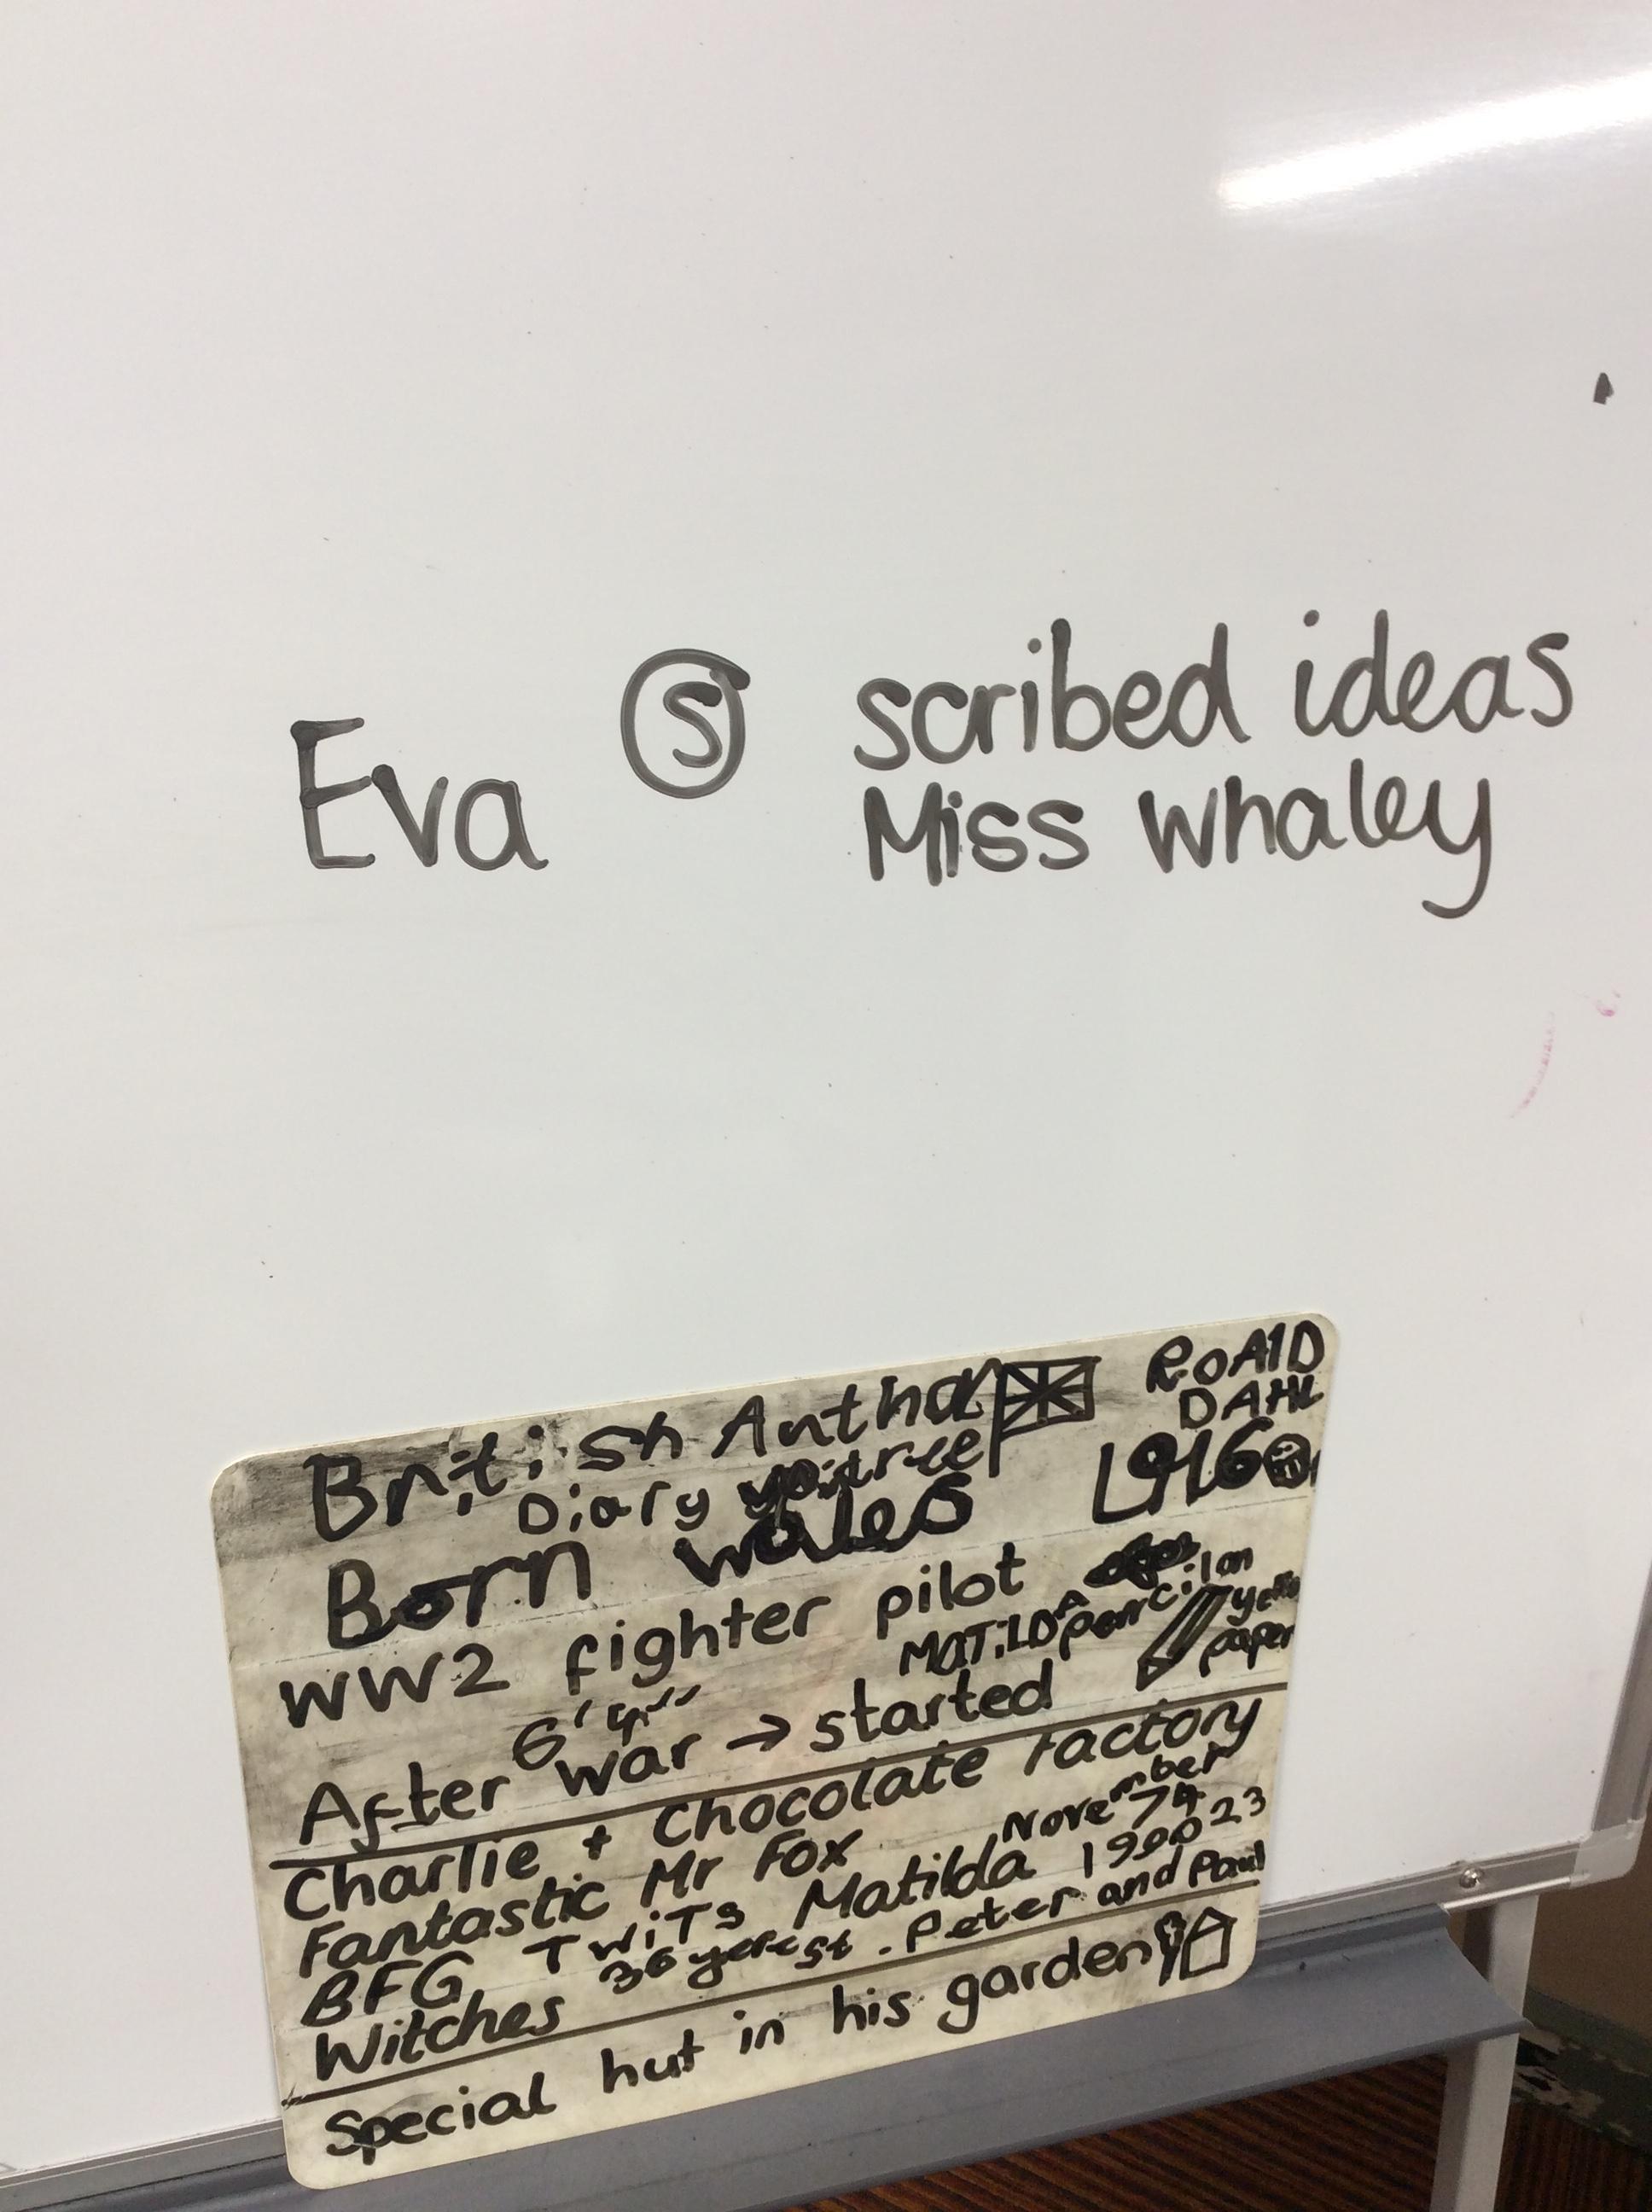 Eva Ⓢ scribed ideas
Miss Whaley
British Anthor
ROAlD
DAHL
Diary
1916
Born wales
WW2 fighter pilot
MATiLDA pencil on
yellow
paper
6'4"
After war → started
Charlie + Chocolate Factory
Fantastic Mr Fox
November
74
BFG TWiTs Matilda 1990 23
Witches 36 yerest . Peter and Paul
Special hut in his garden